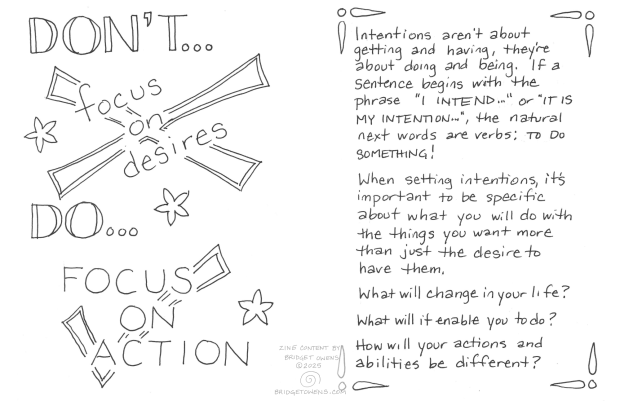 DON'T...
focus
on
desires
DO...
FOCUS
ON
ACTION
ZINE CONTENT BY
BRIDGET OWENS
©2025
BRIDGETOWENS.COM
Intentions aren't about
getting and having, they're
about doing and being. If a
sentence begins with the
phrase "I INTEND..." or "IT IS
MY INTENTION...", the natural
next words are verbs; TO DO
SOMETHING!
When setting intentions, it's
important to be specific
about what you will do with
the things you want more
than just the desire to
have them.
What will change in your life?
What will it enable you to do?
How will your actions and
abilities be different?